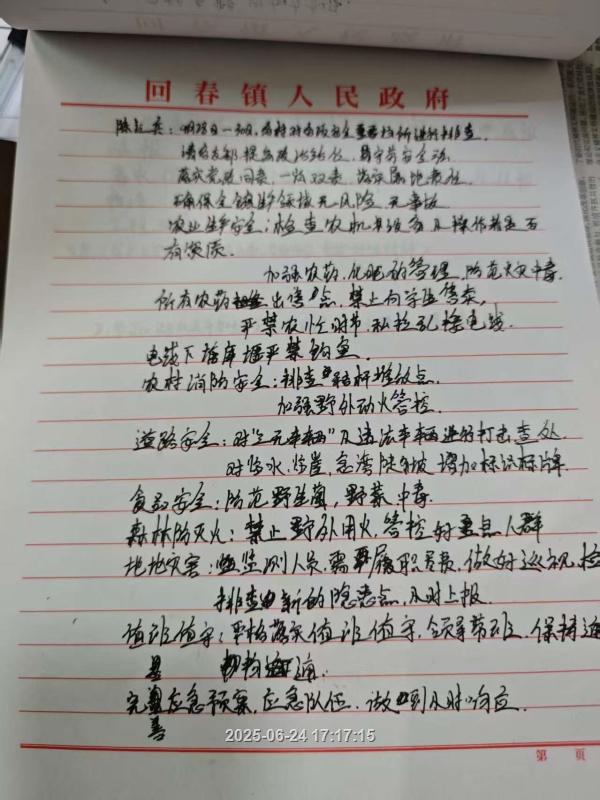 回春镇人民政府
陈 : 4月28日一 各村对各 安全 进行排查.
请各支部提高政治站位, 守安全
落实党政同责, 一岗双责, 落实属地责任
确保全镇生产领域无风险, 无事故
农业生产安全: 检查农机具设备及操作者是否
有资质.
加强农药、化肥的管理, 防范火灾中毒.
所有农药 出售点, 禁止向学生售卖,
严禁农忙时节, 私拉乱接电线.
电线下 库堰严禁钓鱼.
农村消防安全: 排查秸秆堆放点.
加强野外动火管控.
道路安全: 对"三无车辆"及违法车辆进行打击查处.
对临水、临崖、急湾陡坡增加标识标牌.
食品安全: 防范野生菌, 野菜中毒.
森林防灭火: 禁止野外用火, 管控好重点人群
地地灾害: 监测人员, 需要履职尽责, 做好巡视, 检
排查出新的隐患点, 及时上报.
值班值守: 严格落实值班值守, 领导带班, 保持通
通.
完善应急预案, 应急队伍, 做到及时响应.
善
2025-06-24 17:17:15
第 页